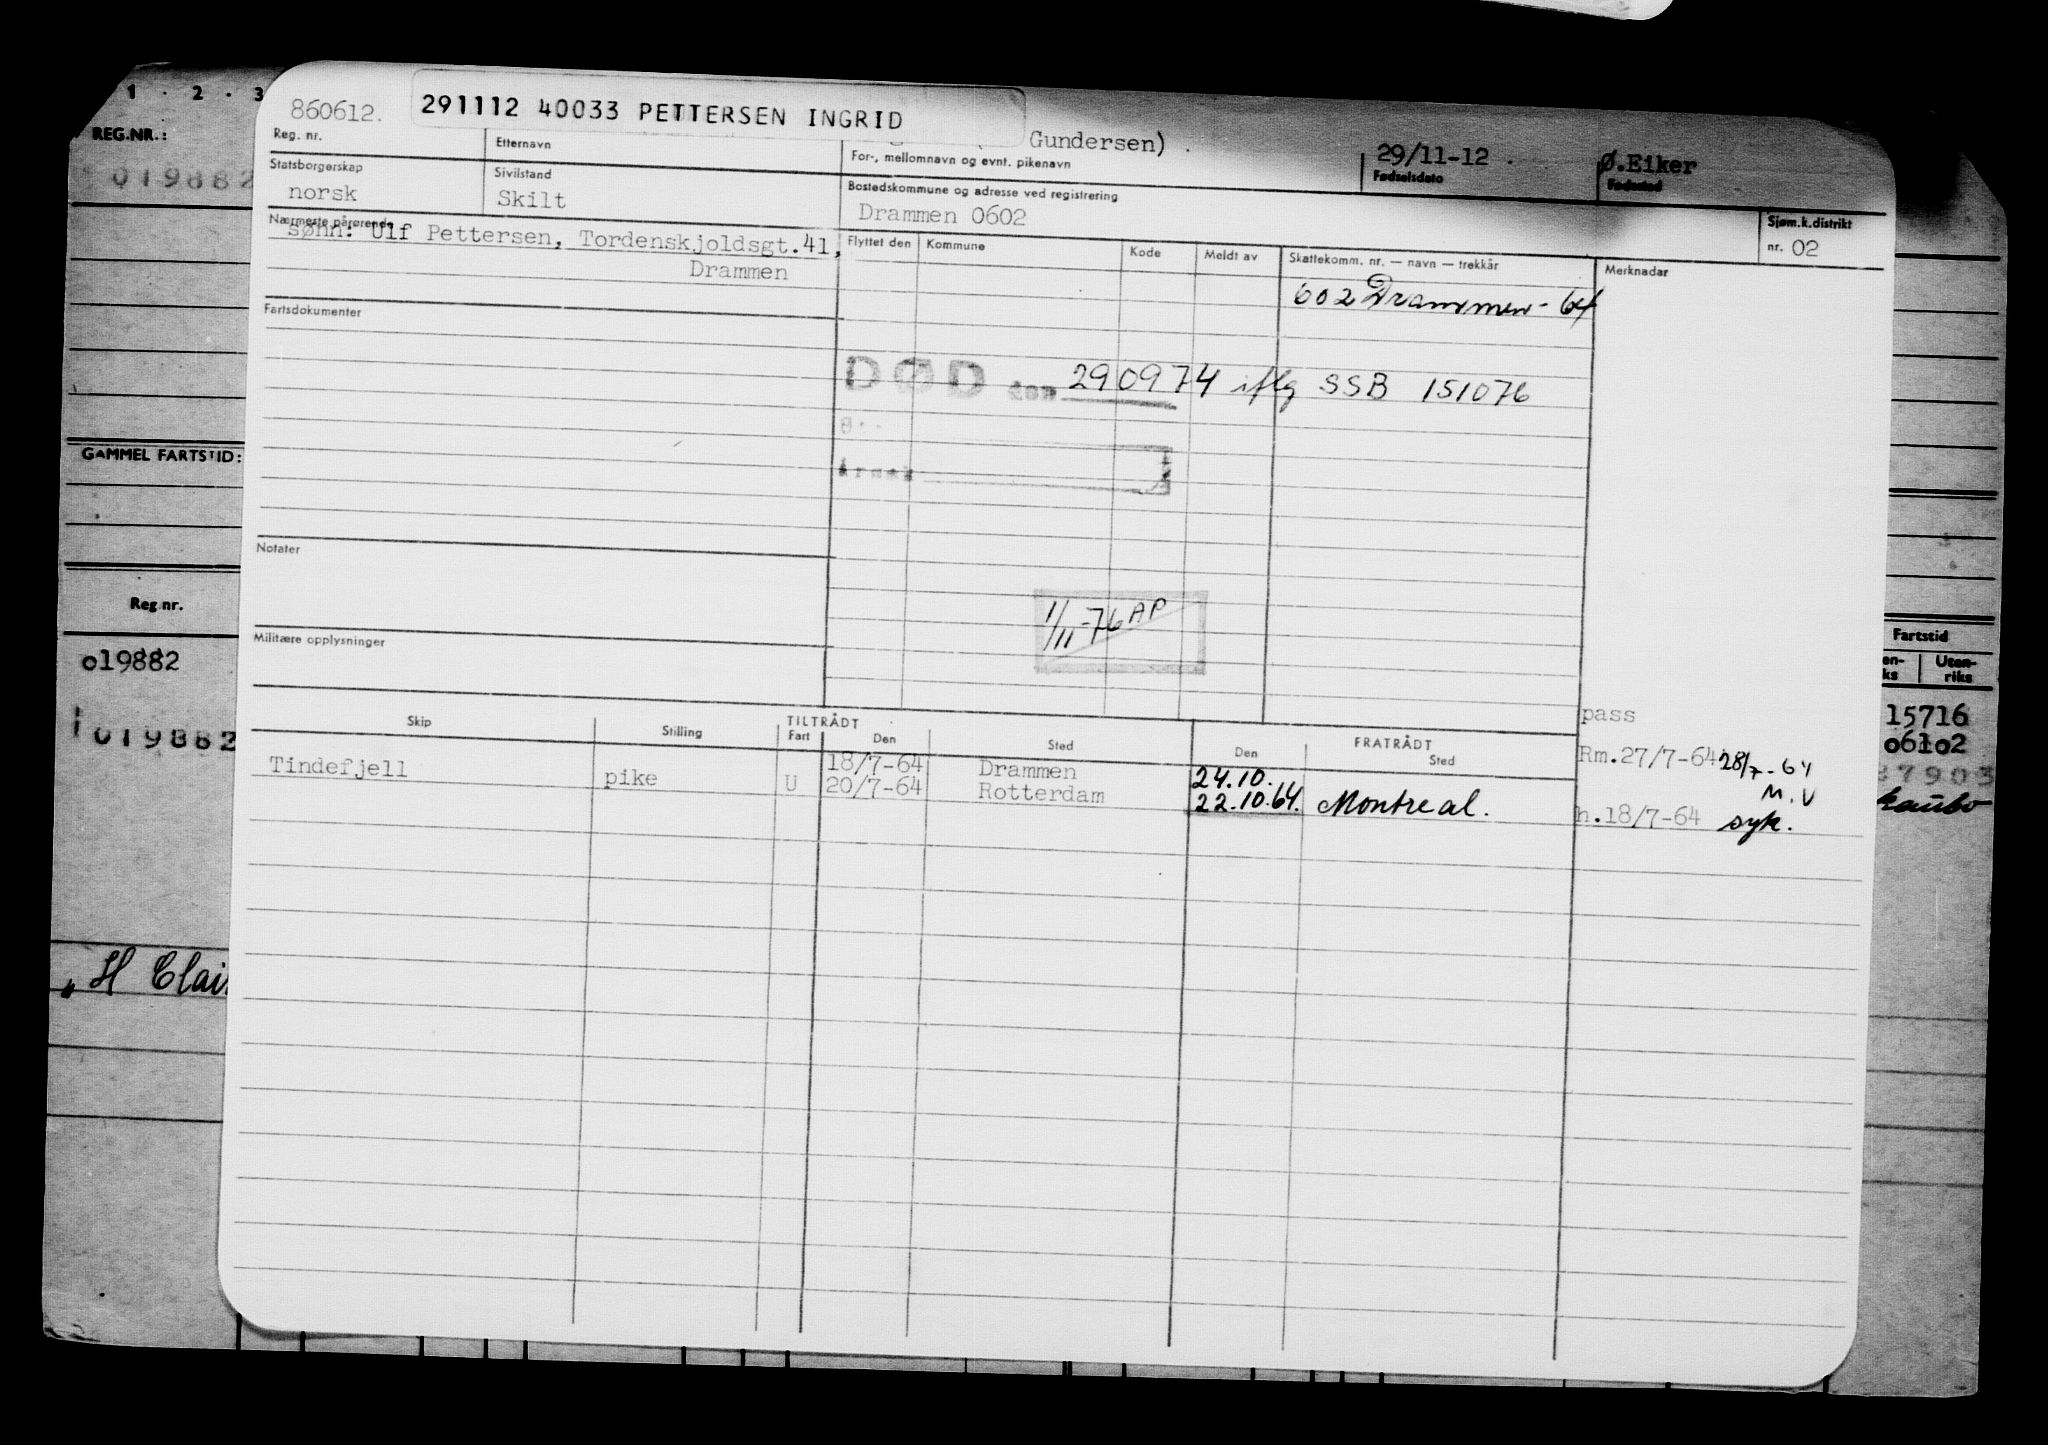 1 · 2 · 3
REG.NR.:
019882
GAMMEL FARTSTID:
Reg.nr.
o19882
019882
„H Clai
860612.
291112 40033 PETTERSEN INGRID
Gundersen) .
29/11-12 .
Ø.Eiker
Reg. nr.
Etternavn
For-, mellomnavn og evnt. pikenavn
Fødselsdato
Fødested
Statsborgerskap
norsk
Sivilstand
Skilt
Bostedskommune og adresse ved registrering
Drammen 0602
Sjøm.k.distrikt
nr. 02
Nærmeste pårørende
sønn: Ulf Pettersen, Tordenskjoldsgt.41,
Drammen
Flyttet den
Kommune
Kode
Meldt av
Skattekomm. nr. — navn — trekkår
Merknadar
602 Drammen - 64
Fartsdokumenter
DØD den 290974 iflg SSB 151076
Notater
1/11-76 AP
Militære opplysninger
Skip
Stilling
TILTRÅDT
Fart
Den
Sted
FRATRÅDT
Den
Sted
pass
Tindefjell
pike
U
18/7-64
20/7-64
Drammen
Rotterdam
24.10.
22.10.64.
Montreal.
Rm.27/7-64
28/7-64
M.V
h.18/7-64
syk.
Fartstid
en-
ks
Uten-
riks
15716
o61o2
37903